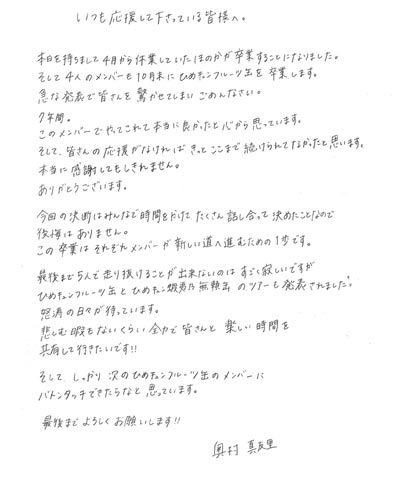 いつも応援して下さっている皆様へ。
本日を持ちまして4月から休業していたほのかが卒業することになりました。
そして4人のメンバーも10月末にひめキュンフルーツ缶を卒業します。
急な発表で皆さんを驚かせてしまいごめんなさい。
7年間。
このメンバーでやってこれて本当に良かったと心から思っています。
そして、皆さんの応援がなければきっとここまで続けられてなかったと思います。
本当に感謝してもしきれません。
ありがとうございます。
今回の決断はみんなで時間をかけてたくさん話し合って決めたことなので
後悔はありません。
この卒業はそれぞれメンバーが新しい道へ進むための1歩です。
最後まで5人で走り抜けることが出来ないのはすごく寂しいですが
ひめキュンフルーツ缶とひめキュン親男乃無頼缶のツアーも発表されました。
怒涛の日々が待っています。
悲しむ暇もないくらい全力で皆さんと楽しい時間を
共有して行きたいです!!
そして しっかり次のひめキュンフルーツ缶のメンバーに
バトンタッチできたらなと思っています。
最後までよろしくお願いします!!
奥村 真友里